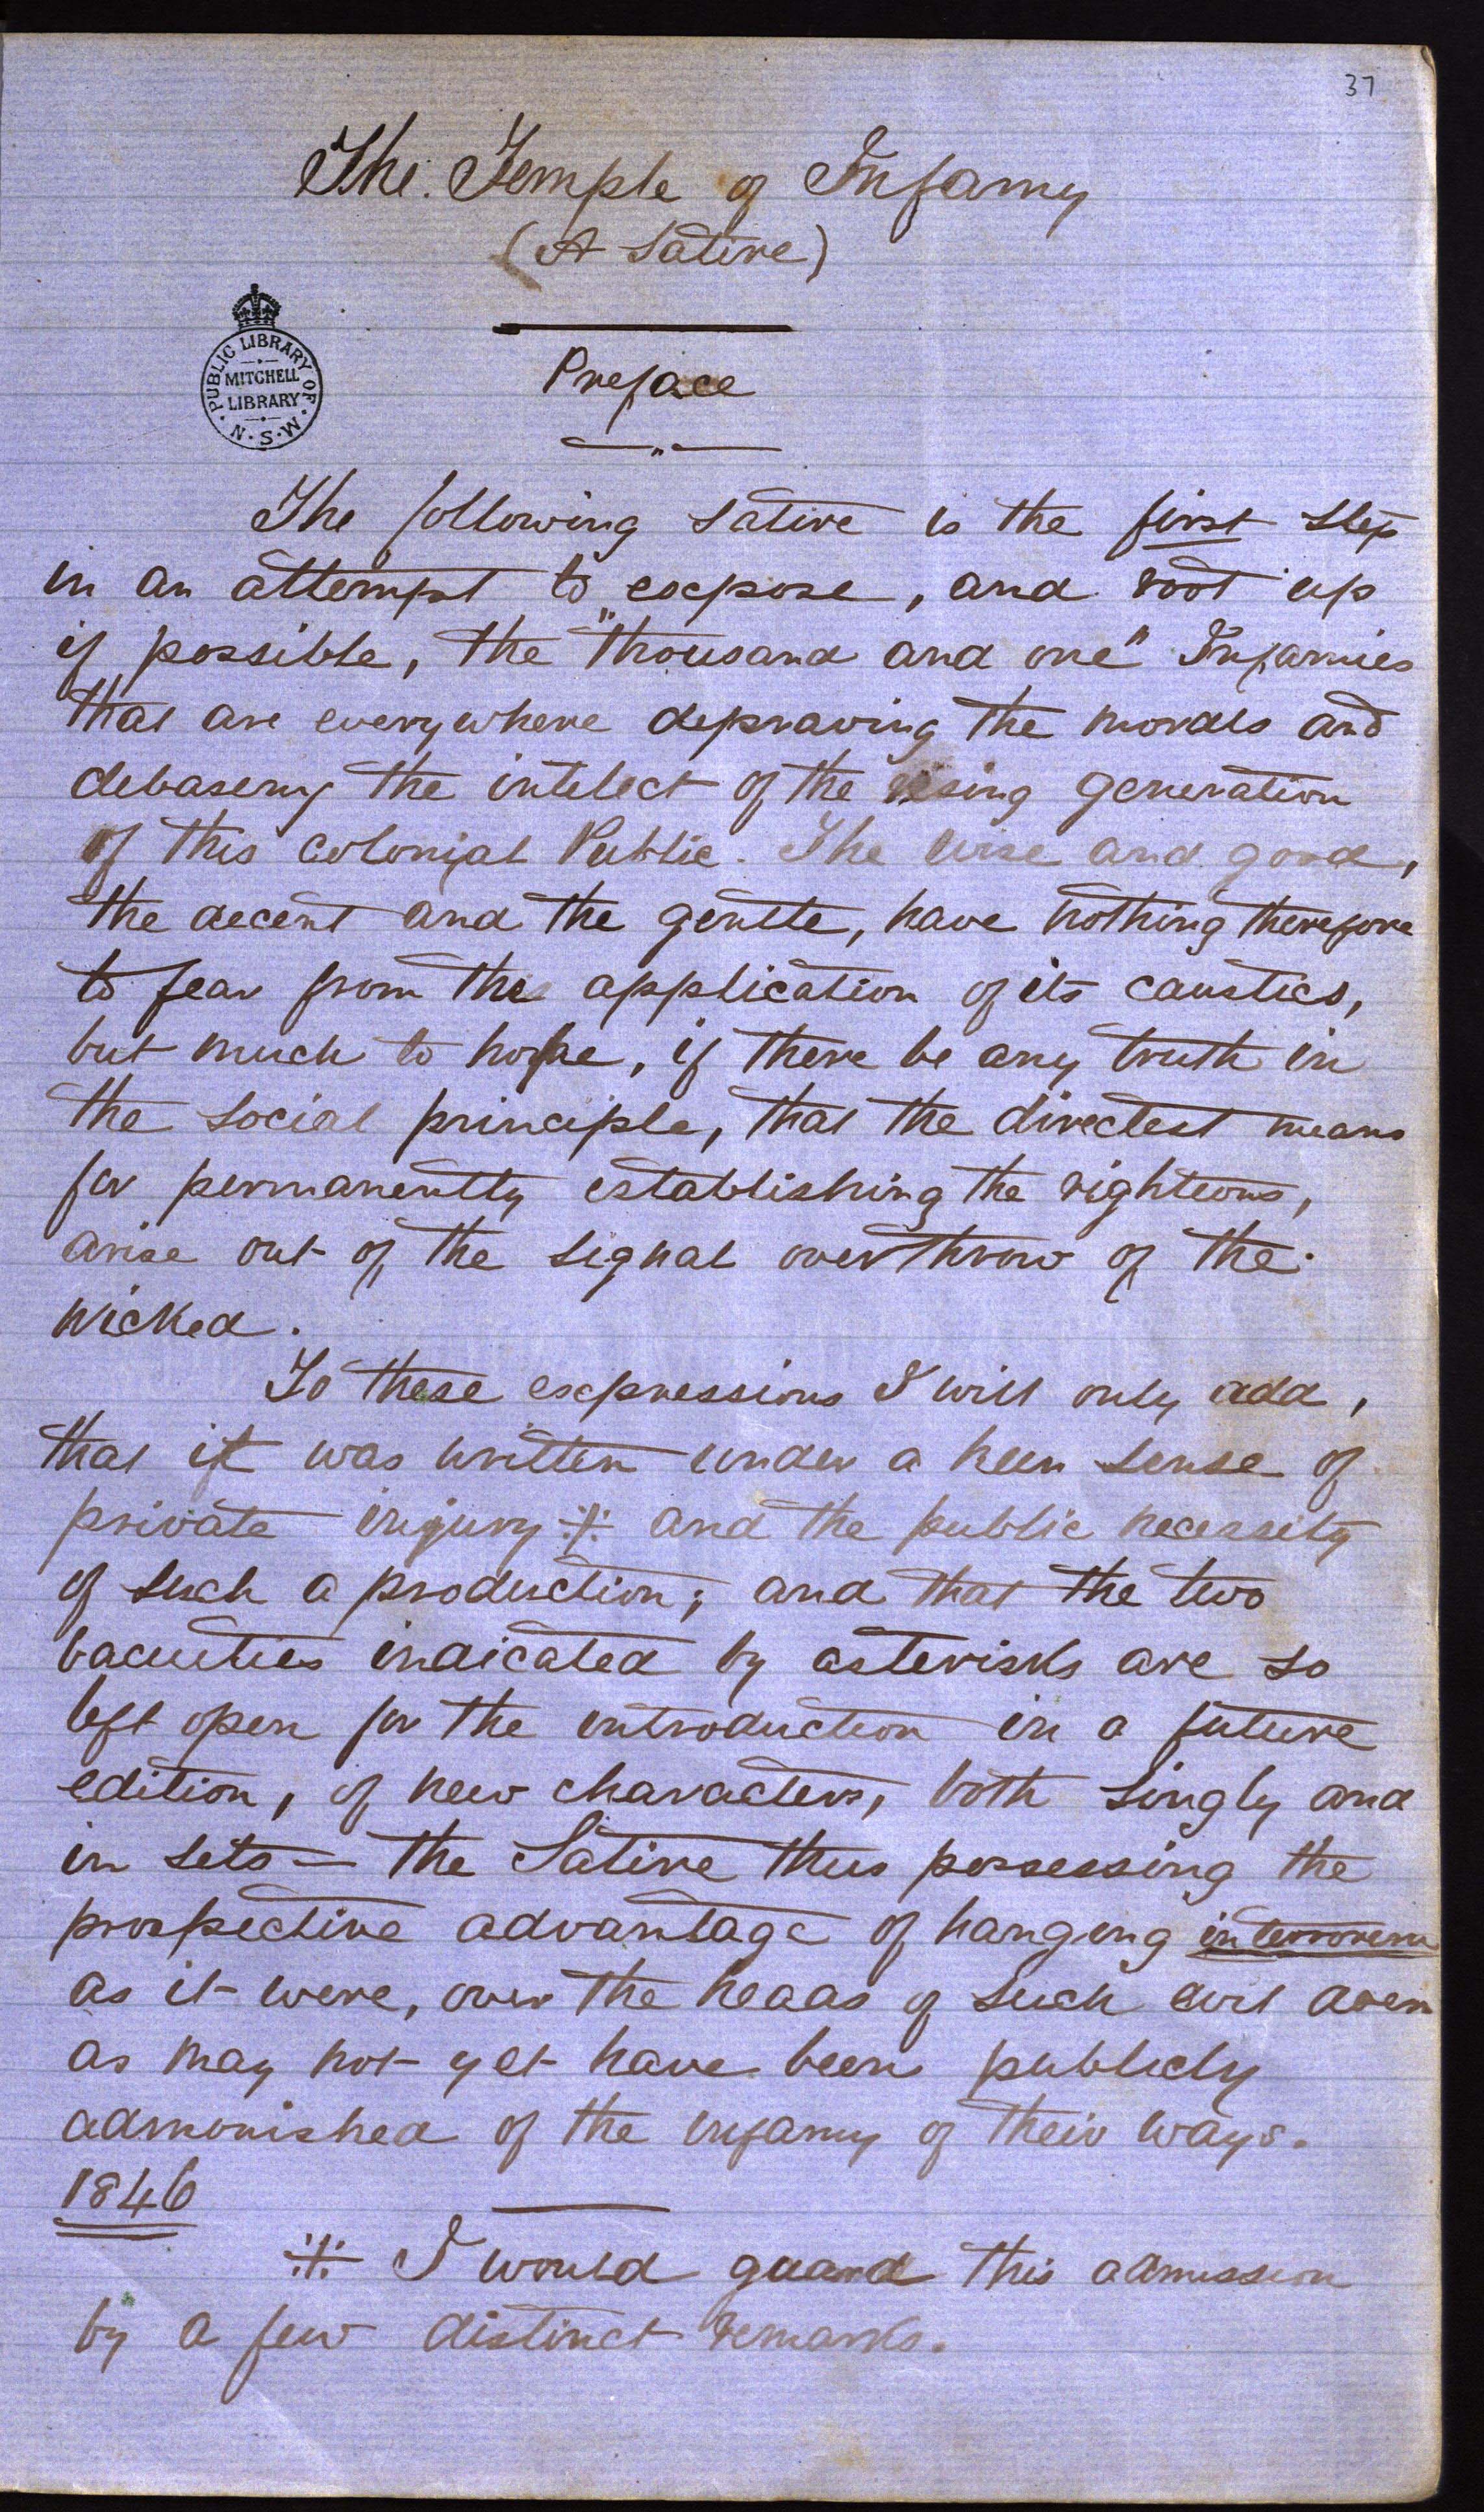 37
The Temple of Infamy
(A Satire)
PUBLIC LIBRARY OF N.S.W.
MITCHELL
LIBRARY
Preface
The following satire is the first step
in an attempt to expose, and root up
if possible, the "thousand and one" Infamies
that are everywhere depraving the morals and
debaseing the intelect of the rising generation
of this colonial Public. The wise and good,
the decent and the gentle, have nothing therefore
to fear from the application of its caustics,
but much to hope, if there be any truth in
the social principle, that the directest means
for permanently establishing the righteous,
arise out of the signal overthrow of the
wicked.
To these expressions I will only add,
that it was written under a keen sense of
private injury ※ and the public necessity
of such a production; and that the two
vacuities indicated by asterisks are so
left open for the introduction in a future
edition, of new characters, both singly and
in sets — the Satire thus possessing the
prospective advantage of hanging in terrorem
as it were, over the heads of such evil doers
as may not yet have been publicly
admonished of the infamy of their ways.
1846
※ I would guard this admission
by a few distinct remarks.